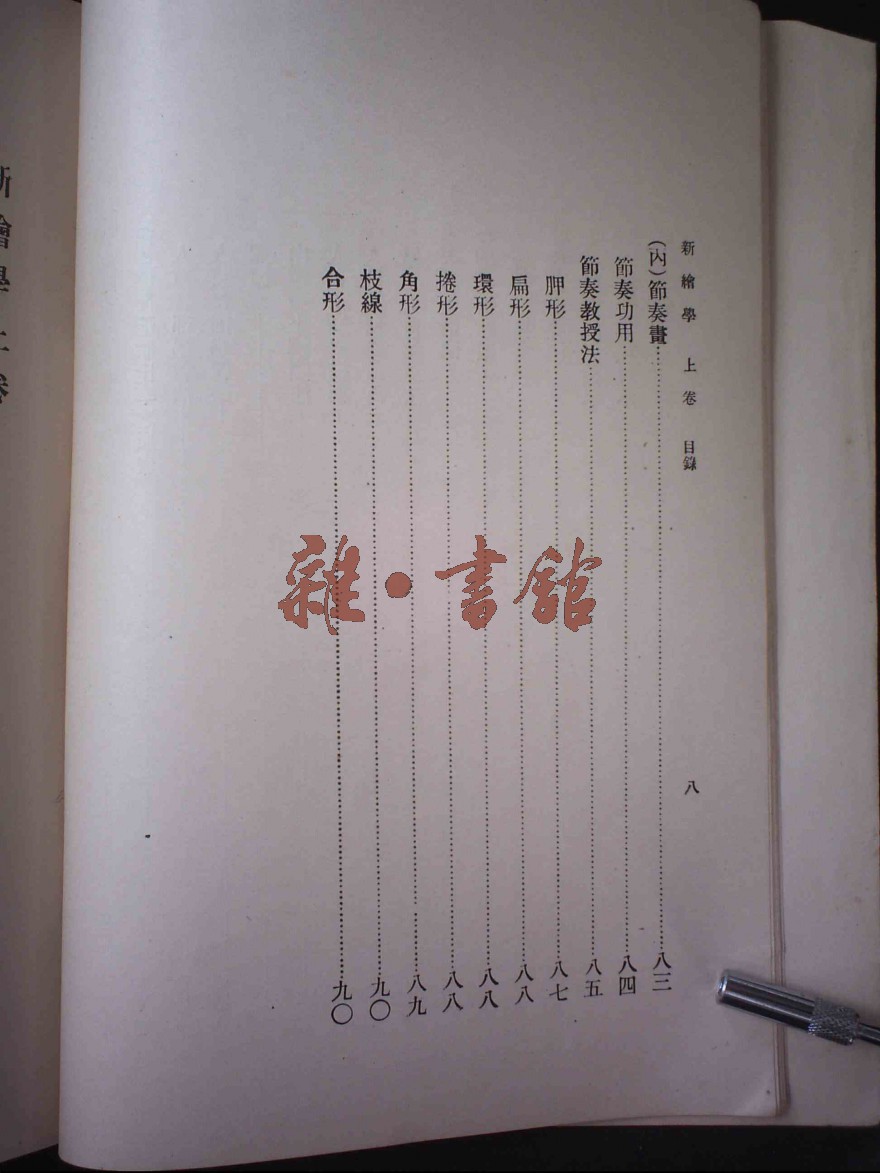 新繪學 上卷 目錄 八
(內)節奏畫……八三
節奏功用……八四
節奏教授法……八五
胛形……八七
扁形……八八
環形……八八
捲形……八八
角形……八九
枝線……九〇
合形……九〇
新繪學上卷
雜·書館